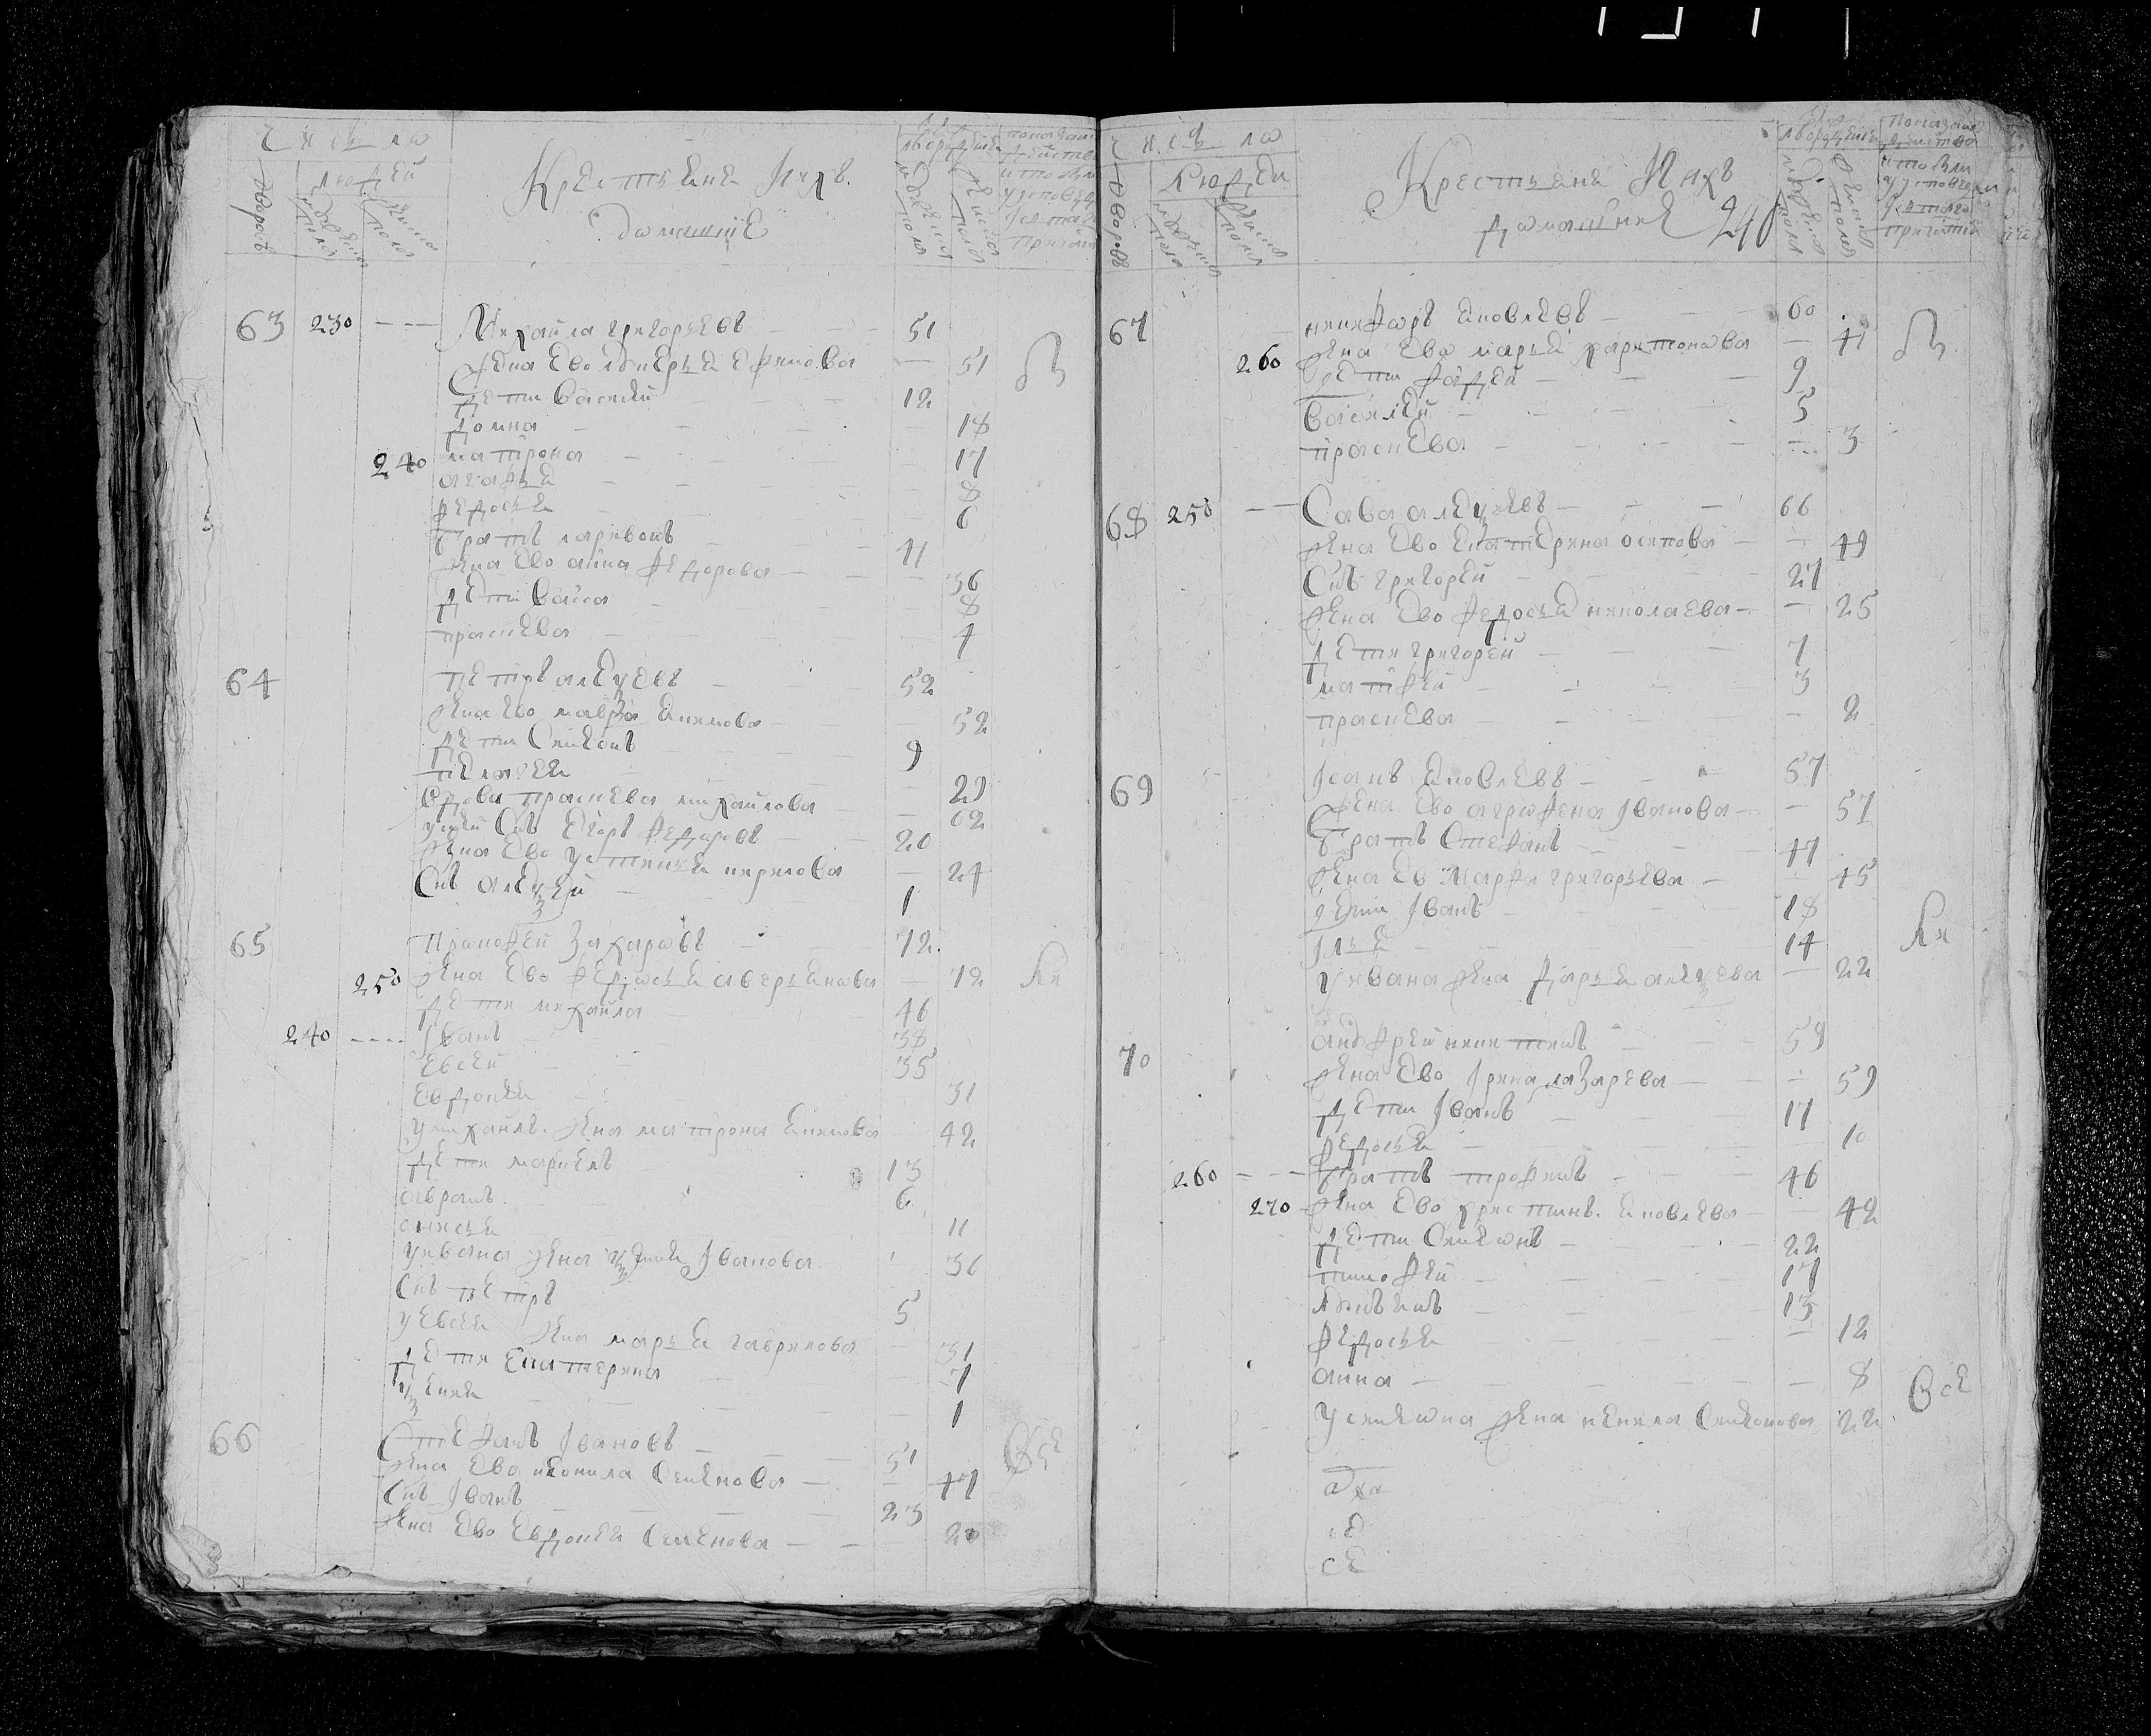 Число
людей
Дворовъ
мужеска пола
женска пола
Крестьяне ихъ
домашние
мужеска пола
женска пола
63 230 Михаила григорьевъ 51
Жена ево лукерья ефимова 51
дети василей 12
домна 18
240 матрона 17
агафья 8
федосья 6
братъ ларивонъ 41
жена ево анна федорова 36
дети васса 8
прасковья 4
64 Петръ алеѯевъ 52
жена ево мавра екимова 52
дети Симионъ 9
пелагея 29
вдова прасковья михайлова 62
у ней Снъ егоръ федоровъ 20
жена ево устинья кирилова 24
Снъ алеѯей 1
65 Прокофей Захаровъ 72
250 жена ево федосья аверьянова 72
дети михайла 46
240 Иванъ 38
евсей 35
евдокия 31
у михайлы жена матрона екимова 42
дети маркелъ 13
аврамъ 6
анисья 11
у ивана жена ѯения Иванова 36
Снъ петръ 5
у евсея жена марья гаврилова 31
дети екатерина 7
ѯения 1
66 Стефанъ Ивановъ 51
жена ево неонила Семенова 47
Снъ Иванъ 23
жена ево евдокия Семенова 20
Число
Людей
Дворовъ
мужеска пола
женска пола
Крестьяне ихъ
домашние 240
мужеска пола
женска пола
67 никифоръ яковлевъ 60
260 жена ево марья харитонова 41
дети фадей 9
василей 5
прасковья 3
68 250 Сава алеѯеевъ 66
жена ево екатерина осипова 49
Снъ григорей 27
жена ево федосья николаева 25
дети григорей 7
матфей 3
прасковья 2
69 Исакъ яковлевъ 57
жена ево аграфена Иванова 57
братъ Стефанъ 47
жена ево марфа григорьева 45
дети Иванъ 18
Илья 14
у ивана жена дарья алеѯеева 22
70 андрей никитинъ 59
жена ево Ирина лазарева 59
дети Иванъ 17
федосья 10
260 братъ трофимъ 46
270 жена ево христина яковлева 42
дети Симионъ 22
тимофей 17
лукианъ 13
федосья 12
анна 8
у симиона жена неонила Симионова 22
Все